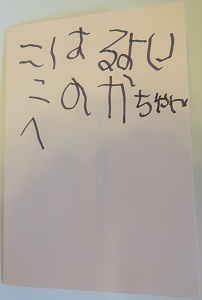 こはるよい
このかちゃん
へ